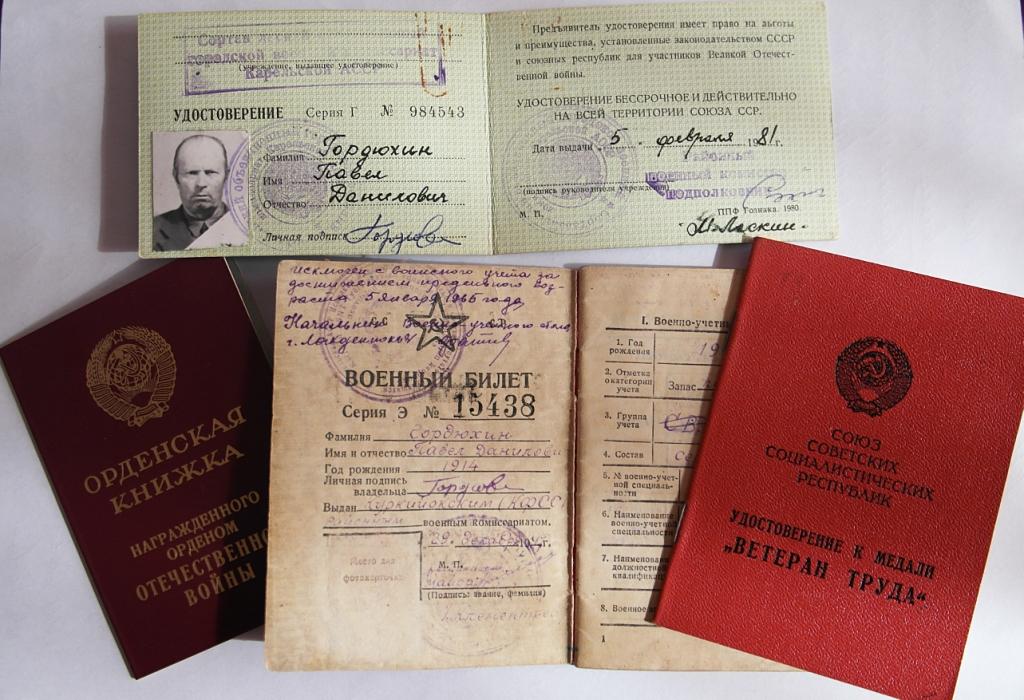 Карельской АССР
(учреждение, выдавшее удостоверение)
УДОСТОВЕРЕНИЕ Серия Г № 984543
Фамилия Гордюхин
Имя Павел
Отчество Данилович
Личная подпись
Предъявитель удостоверения имеет право на льготы
и преимущества, установленные законодательством СССР
и союзных республик для участников Великой Отечест-
венной войны.
УДОСТОВЕРЕНИЕ БЕССРОЧНОЕ И ДЕЙСТВИТЕЛЬНО
НА ВСЕЙ ТЕРРИТОРИИ СОЮЗА ССР.
Дата выдачи 5 февраля 1981 г.
(подпись руководителя учреждения)
подполковник
М. П.
ППФ Гознака. 1980.
ОРДЕНСКАЯ
КНИЖКА
НАГРАЖДЕННОГО
ОРДЕНОМ
ОТЕЧЕСТВЕННОЙ
ВОЙНЫ
с воинского учета за
достижением предельного воз-
раста 5 января 1965 года
Начальник
ВОЕННЫЙ БИЛЕТ
Серия Э № 15438
Фамилия Гордюхин
Имя и отчество Павел
Год рождения 1914
Личная подпись
владельца
Выдан
военным комиссариатом.
29
М. П.
Место для
фотокарточки
(Подпись: звание, фамилия)
I. Военно-учетн
1. Год
рождения 19
2. Отметка
о категории
учета Запас
3. Группа
учета
4. Состав
5. № военно-учет-
ной специаль-
ности
6. Наименование
военно-учетной
специальности
7. Наименован
должностной
квалификац
8. Военное
1
СОЮЗ
СОВЕТСКИХ
СОЦИАЛИСТИЧЕСКИХ
РЕСПУБЛИК
УДОСТОВЕРЕНИЕ К МЕДАЛИ
„ВЕТЕРАН ТРУДА“